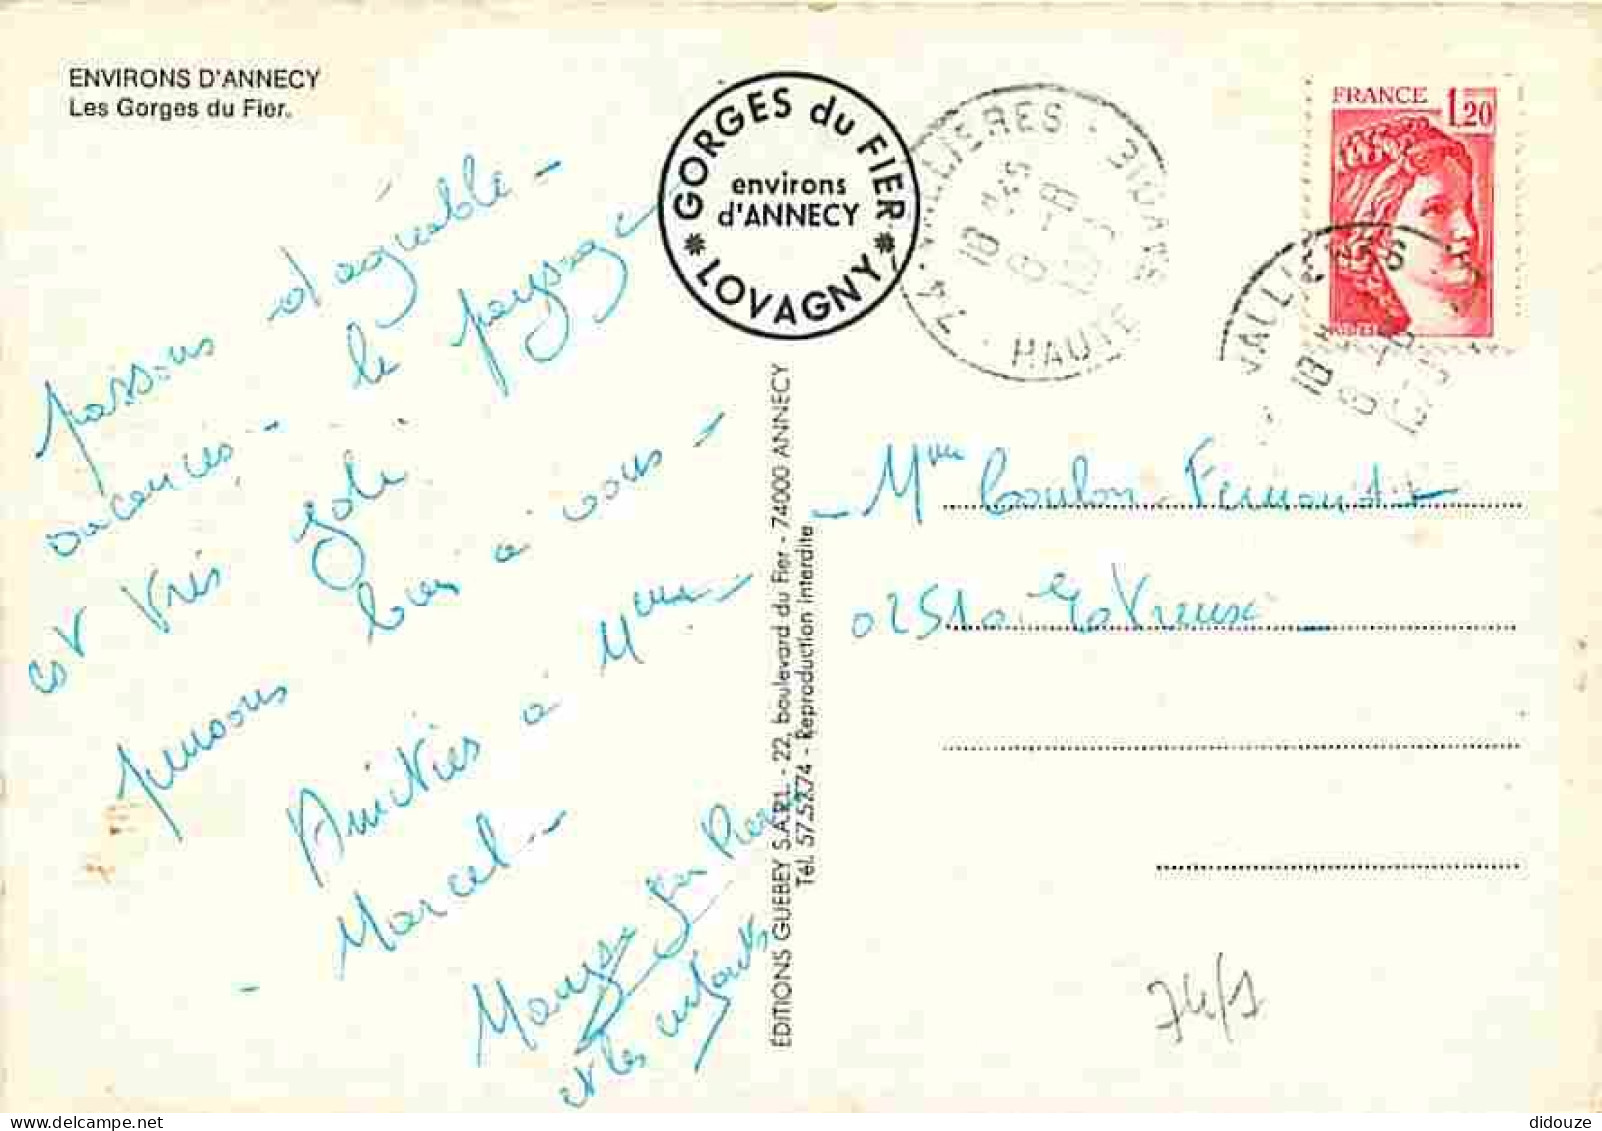 ENVIRONS D'ANNECY
Les Gorges du Fier.
GORGES du FIER
environs
d'ANNECY
* LOVAGNY *
VALLIERES
74
HAUTE
FRANCE 1,20
VALLIERES
passons d'agréable -
vacances - le paysage
est très joli.
pensons bien à vous -
Amitiés à Mme
Marcel -
Jean Pierre
et les enfants
ÉDITIONS GUEBEY S.A.R.L. - 22, boulevard du Fier - 74000 ANNECY
Tél. 57.52.74 - Reproduction interdite
- Mme Coulon Fernand -
02510
74/1
didouze